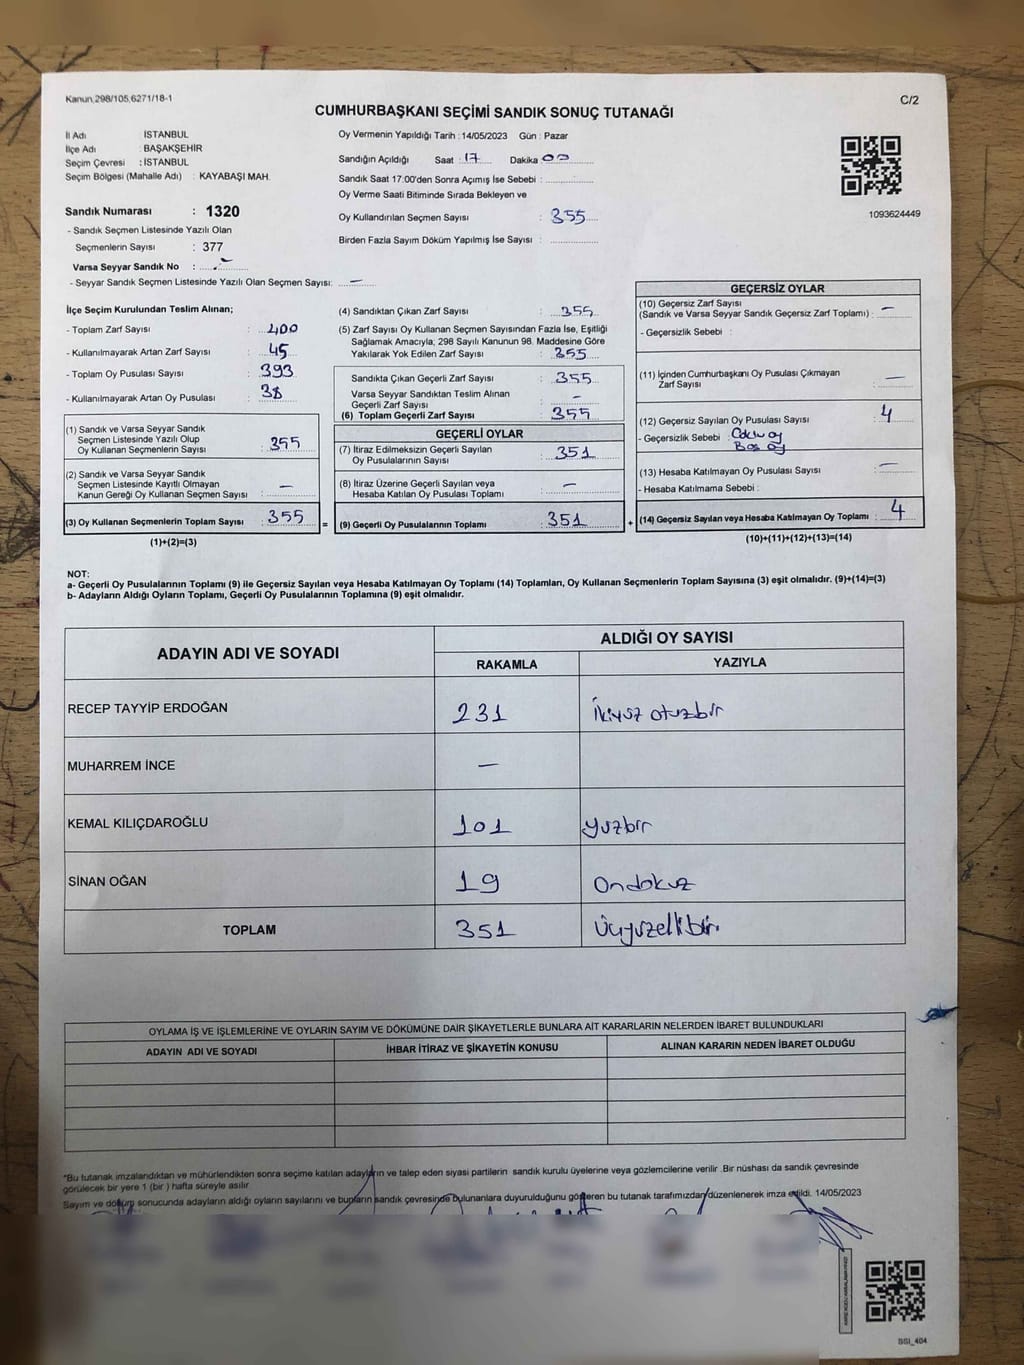 Kanun,298/105,6271/18-1
C/2
CUMHURBAŞKANI SEÇİMİ SANDIK SONUÇ TUTANAĞI
İl Adı İSTANBUL
İlçe Adı : BAŞAKŞEHİR
Seçim Çevresi : İSTANBUL
Seçim Bölgesi (Mahalle Adı) : KAYABAŞI MAH.
Sandık Numarası : 1320
- Sandık Seçmen Listesinde Yazılı Olan
Seçmenlerin Sayısı : 377
Varsa Seyyar Sandık No :
- Seyyar Sandık Seçmen Listesinde Yazılı Olan Seçmen Sayısı: —
Oy Vermenin Yapıldığı Tarih : 14/05/2023 Gün : Pazar
Sandığın Açıldığı Saat : 17 Dakika 00
Sandık Saat 17:00'den Sonra Açımış İse Sebebi :
Oy Verme Saati Bitiminde Sırada Bekleyen ve
Oy Kullandırılan Seçmen Sayısı : 355
Birden Fazla Sayım Döküm Yapılmış İse Sayısı :
1093624449
İlçe Seçim Kurulundan Teslim Alınan;
- Toplam Zarf Sayısı : 400
- Kullanılmayarak Artan Zarf Sayısı : 45
- Toplam Oy Pusulası Sayısı : 393
- Kullanılmayarak Artan Oy Pusulası : 38
(1) Sandık ve Varsa Seyyar Sandık
Seçmen Listesinde Yazılı Olup
Oy Kullanan Seçmenlerin Sayısı : 355
(2) Sandık ve Varsa Seyyar Sandık
Seçmen Listesinde Kayıtlı Olmayan
Kanun Gereği Oy Kullanan Seçmen Sayısı : —
(3) Oy Kullanan Seçmenlerin Toplam Sayısı : 355 =
(1)+(2)=(3)
(4) Sandıktan Çıkan Zarf Sayısı : 355
(5) Zarf Sayısı Oy Kullanan Seçmen Sayısından Fazla İse, Eşitliği
Sağlamak Amacıyla; 298 Sayılı Kanunun 98. Maddesine Göre
Yakılarak Yok Edilen Zarf Sayısı : 355
Sandıkta Çıkan Geçerli Zarf Sayısı : 355
Varsa Seyyar Sandıktan Teslim Alınan
Geçerli Zarf Sayısı : —
(6) Toplam Geçerli Zarf Sayısı : 355
GEÇERLİ OYLAR
(7) İtiraz Edilmeksizin Geçerli Sayılan
Oy Pusulalarının Sayısı : 351
(8) İtiraz Üzerine Geçerli Sayılan veya
Hesaba Katılan Oy Pusulası Toplamı : —
(9) Geçerli Oy Pusulalarının Toplamı : 351 +
GEÇERSİZ OYLAR
(10) Geçersiz Zarf Sayısı
(Sandık ve Varsa Seyyar Sandık Geçersiz Zarf Toplamı) : —
- Geçersizlik Sebebi :
(11) İçinden Cumhurbaşkanı Oy Pusulası Çıkmayan
Zarf Sayısı : —
(12) Geçersiz Sayılan Oy Pusulası Sayısı : 4
- Geçersizlik Sebebi : oy
Boş oy
(13) Hesaba Katılmayan Oy Pusulası Sayısı : —
- Hesaba Katılmama Sebebi :
(14) Geçersiz Sayılan veya Hesaba Katılmayan Oy Toplamı : 4
(10)+(11)+(12)+(13)=(14)
NOT:
a- Geçerli Oy Pusulalarının Toplamı (9) ile Geçersiz Sayılan veya Hesaba Katılmayan Oy Toplamı (14) Toplamları, Oy Kullanan Seçmenlerin Toplam Sayısına (3) eşit olmalıdır. (9)+(14)=(3)
b- Adayların Aldığı Oyların Toplamı, Geçerli Oy Pusulalarının Toplamına (9) eşit olmalıdır.
ADAYIN ADI VE SOYADI ALDIĞI OY SAYISI
RAKAMLA YAZIYLA
RECEP TAYYİP ERDOĞAN 231 İkiyüz otuzbir
MUHARREM İNCE —
KEMAL KILIÇDAROĞLU 101 yüzbir
SİNAN OĞAN 19 Ondokuz
TOPLAM 351 Üçyüzellibir
OYLAMA İŞ VE İŞLEMLERİNE VE OYLARIN SAYIM VE DÖKÜMÜNE DAİR ŞİKAYETLERLE BUNLARA AİT KARARLARIN NELERDEN İBARET BULUNDUKLARI
ADAYIN ADI VE SOYADI İHBAR İTİRAZ VE ŞİKAYETİN KONUSU ALINAN KARARIN NEDEN İBARET OLDUĞU
*Bu tutanak imzalandıktan ve mühürlendikten sonra seçime katılan adayların ve talep eden siyasi partilerin sandık kurulu üyelerine veya gözlemcilerine verilir .Bir nüshası da sandık çevresinde
görülecek bir yere 1 (bir ) hafta süreyle asılır
Sayım ve döküm sonucunda adayların aldığı oyların sayılarını ve bunların sandık çevresinde bulunanlara duyurulduğunu gösteren bu tutanak tarafımızdan düzenlenerek imza edildi. 14/05/2023
SSI_404